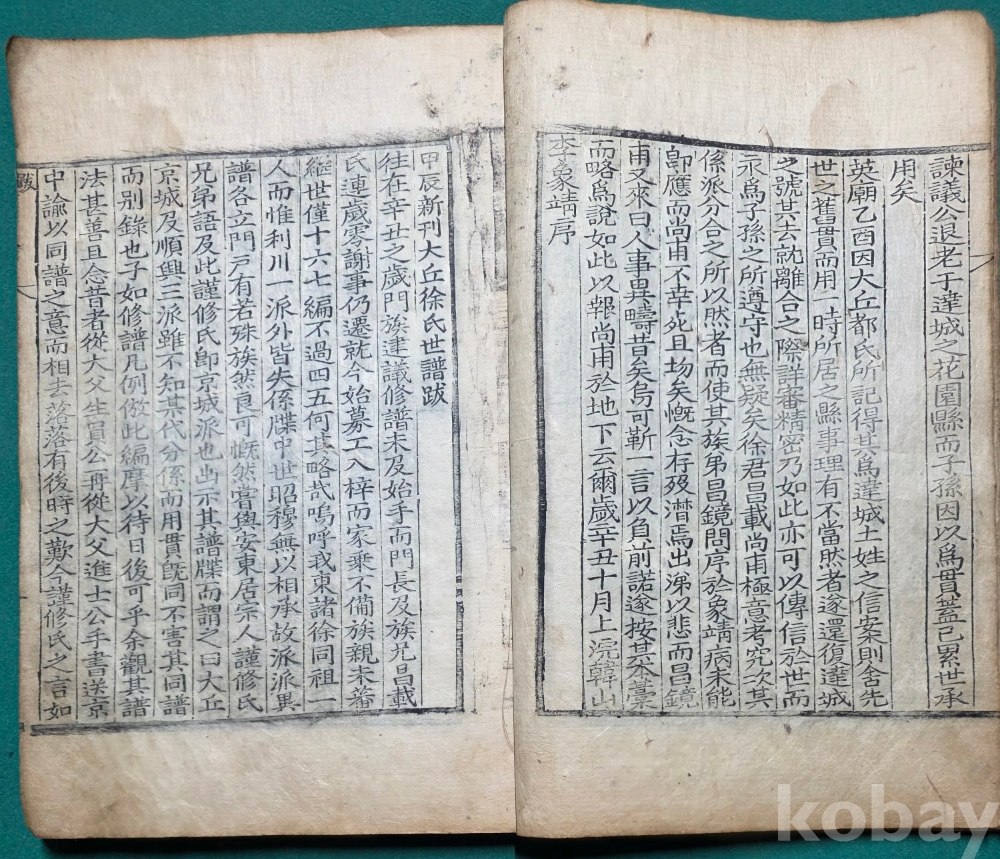 諫議公退老于達城之花園縣而子孫因以爲貫蓋已累世承
用矣
英廟乙酉因大丘都氏所記得其爲達城土姓之信案則舍先
世之舊貫而用一時所居之縣事理有不當然者遂還復達城
之號其去就離合之際詳審精密乃如此亦可以傳信於世而
永爲子孫之所遵守也無疑矣徐君昌載尚甫極意考究次其
係派分合之所以然者而使其族弟昌鏡問序於象靖病未能
卽應而尚甫不幸死且塲矣慨念存歿潸焉出涕以悲而昌鏡
甫又來曰人事異疇昔矣烏可靳一言以負前諾遂按其本藁
而略爲說如此以報尚甫於地下云爾歲辛丑十月上浣韓山
李象靖序
甲辰新刊大丘徐氏世譜跋
往在辛丑之歲門族建議修譜未及始手而門長及族兄昌載
氏連歲零謝事仍遷就今始募工入梓而家乘不備族親未蕃
繼世僅十六七編不過四五何其略哉嗚呼我東諸徐同祖一
人而惟利川一派外皆失係牒中世昭穆無以相承故派派異
譜各立門戶有若殊族然良可慨然嘗與安東居宗人謹修氏
兄弟語及此謹修氏卽京城派也出示其譜牒而謂之曰大丘
京城及順興三派雖不知其代分係而用貫旣同不害其同譜
而別錄也子如修譜凡例倣此編摩以待日後可乎余觀其譜
法甚善且念昔者從大父生員公再從大父進士公手書送京
中諭以同譜之意而相去落落有後時之歎今謹修氏之言如
跋
kobay